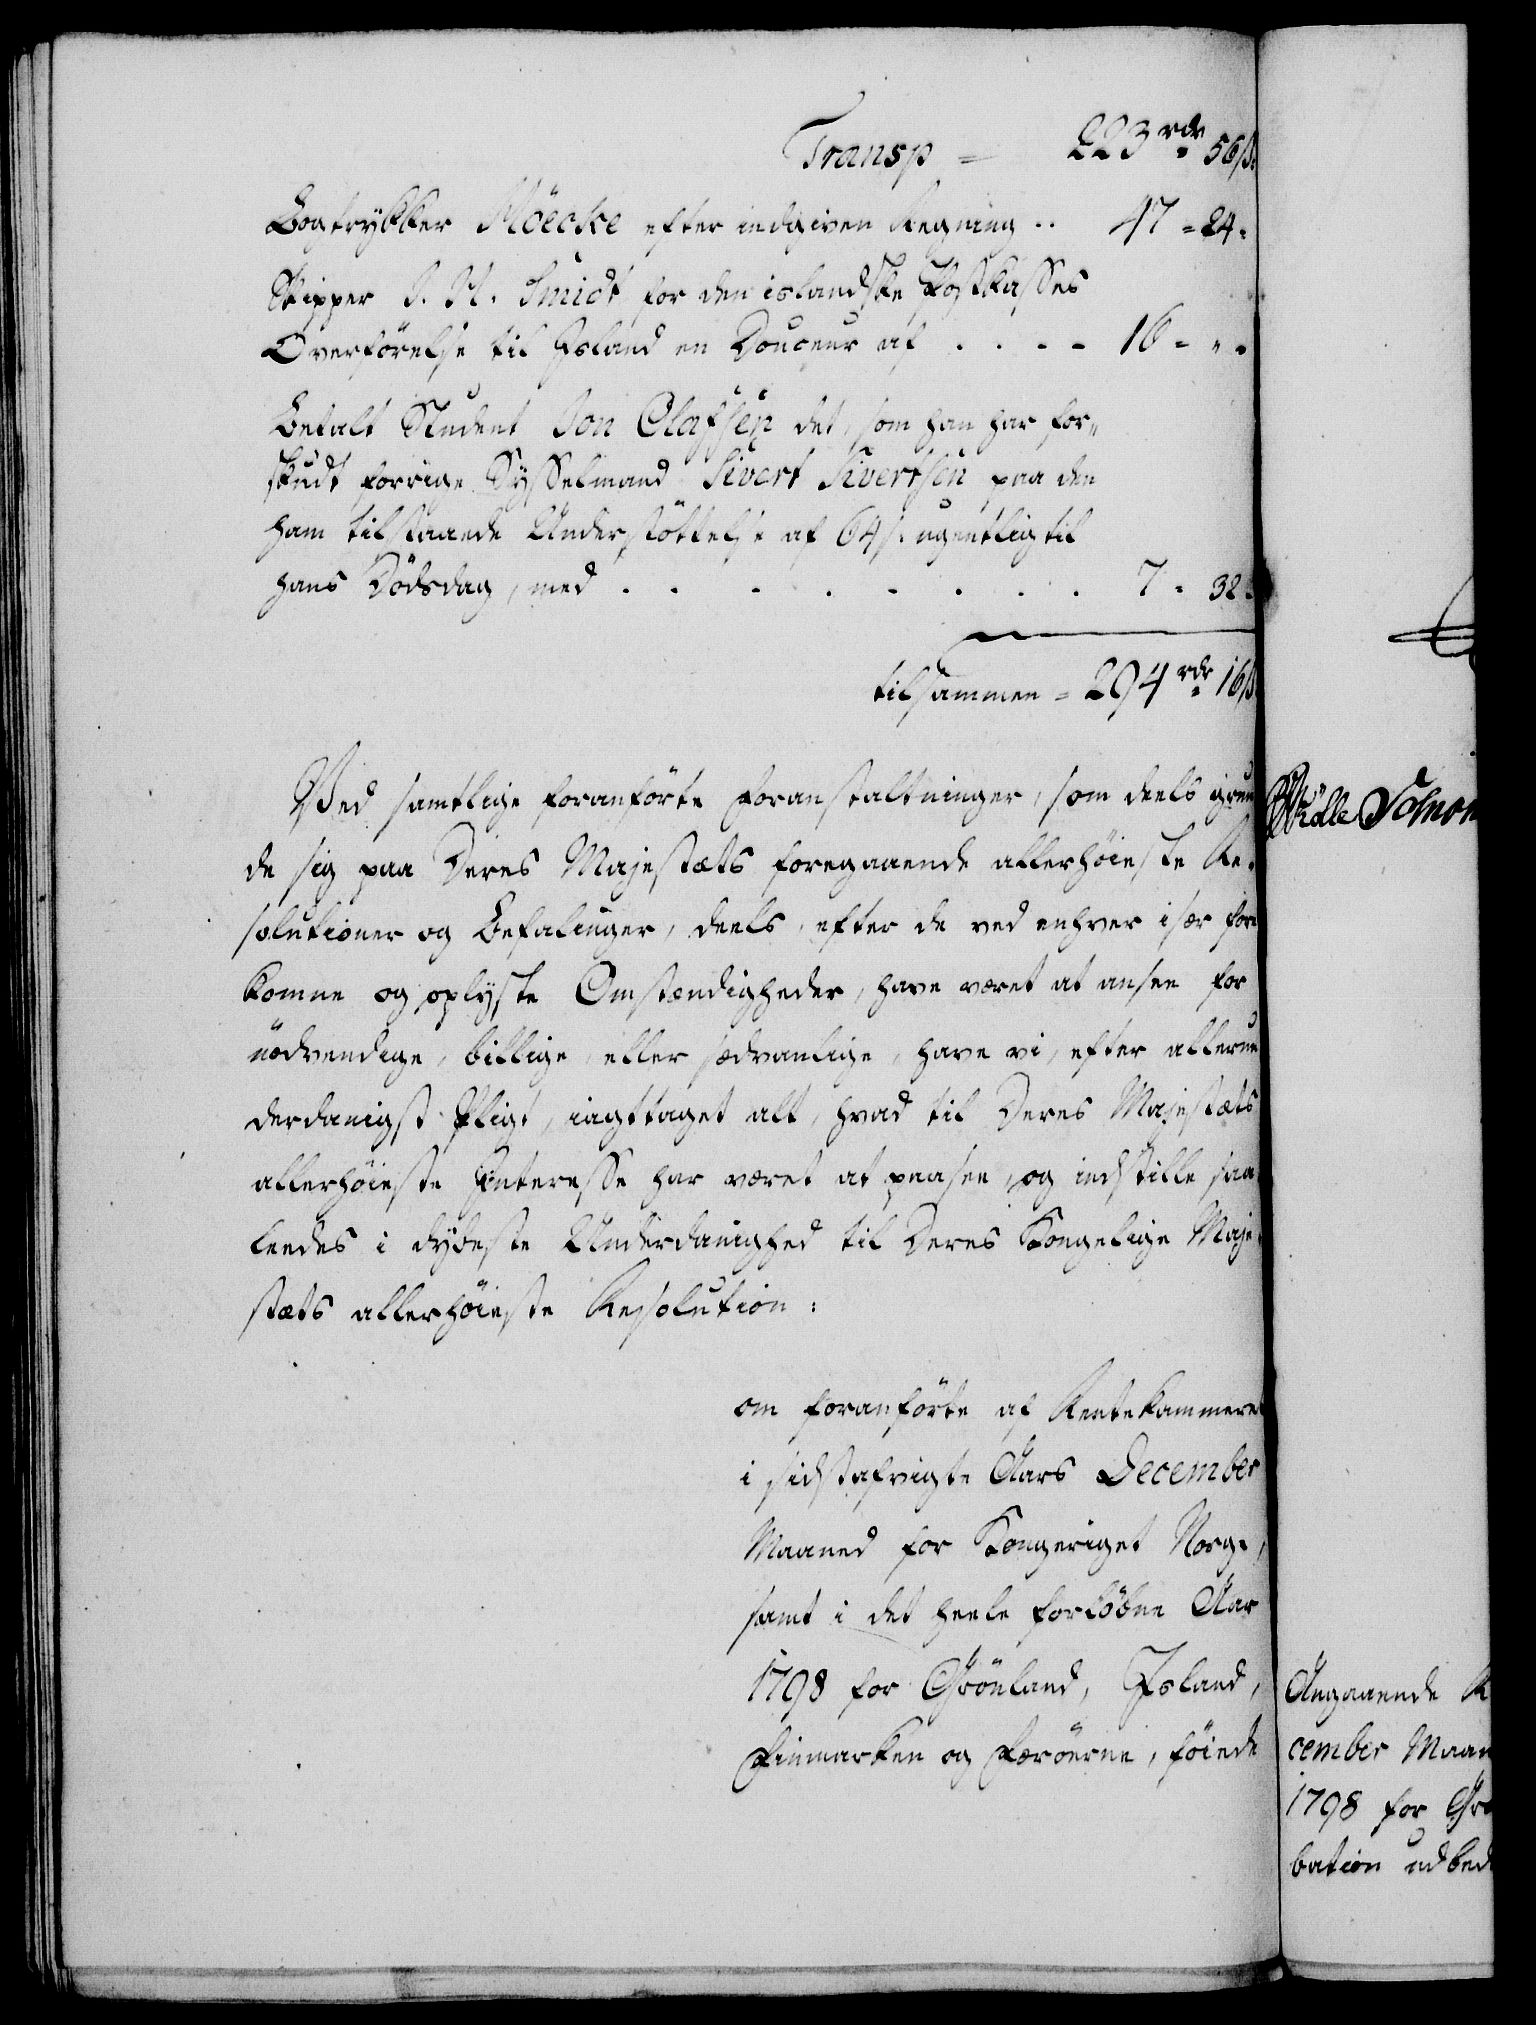 Transp = 223 rdr 56 ß.
Bogtrykker Möecke efter indgiven Regning .. 47 - 24 -
Skipper J. H. Smidt for den islandske Postkasses
Overförelse til Island en Douceur af . . . - 16 - " -
Betalt Student Jon Olafsen det, som han har for-
skudt forrige Sysselmand Sivert Sivertsen paa den
ham tilstaaede Understöttelse af 64 ß. ugentlig til
hans Dödsdag, med . . . . . . . . 7 - 32 -
tilsammen = 294 rdr 16 ß
Ved samtlige foranförte Foranstaltninger, som deels grun
de sig paa Deres Majestæts foregaaende allerhöieste Re-
solutioner og Befalinger, deels, efter de ved enhver især fore
komne og oplyste Omstændigheder, have været at ansee for
nödvendige, billige, eller sædvanlige, have vi, efter allerun
derdanigst Pligt, iagttaget alt, hvad til Deres Majestæts
allerhöieste Interesse har været at paasee, og indstille saa
leedes i dybeste Underdanighed til Deres Kongelige Maje-
stæts allerhöieste Resolution:
om foranförte af Rentekammeret
i sidstafvigte Aars December
Maaned for Kongeriget Norge,
samt i det heele forlöbne Aar
1798 for Grönland, Island,
Finmarken og Færöerne, föiede
Angaaende R
cember Maan
1798 for Grö
bation udbed